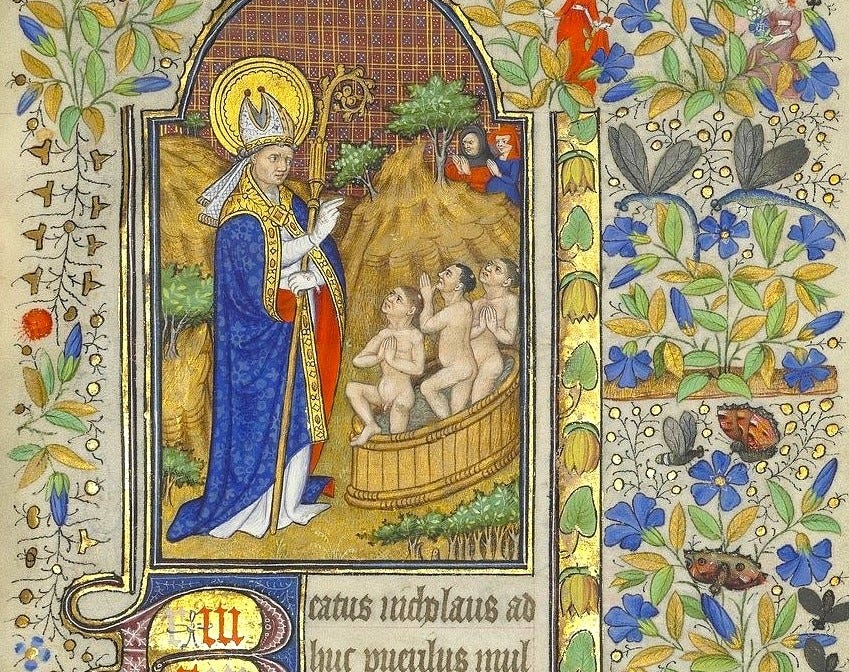 Beatus nicholaus ad
huc puerulus mul